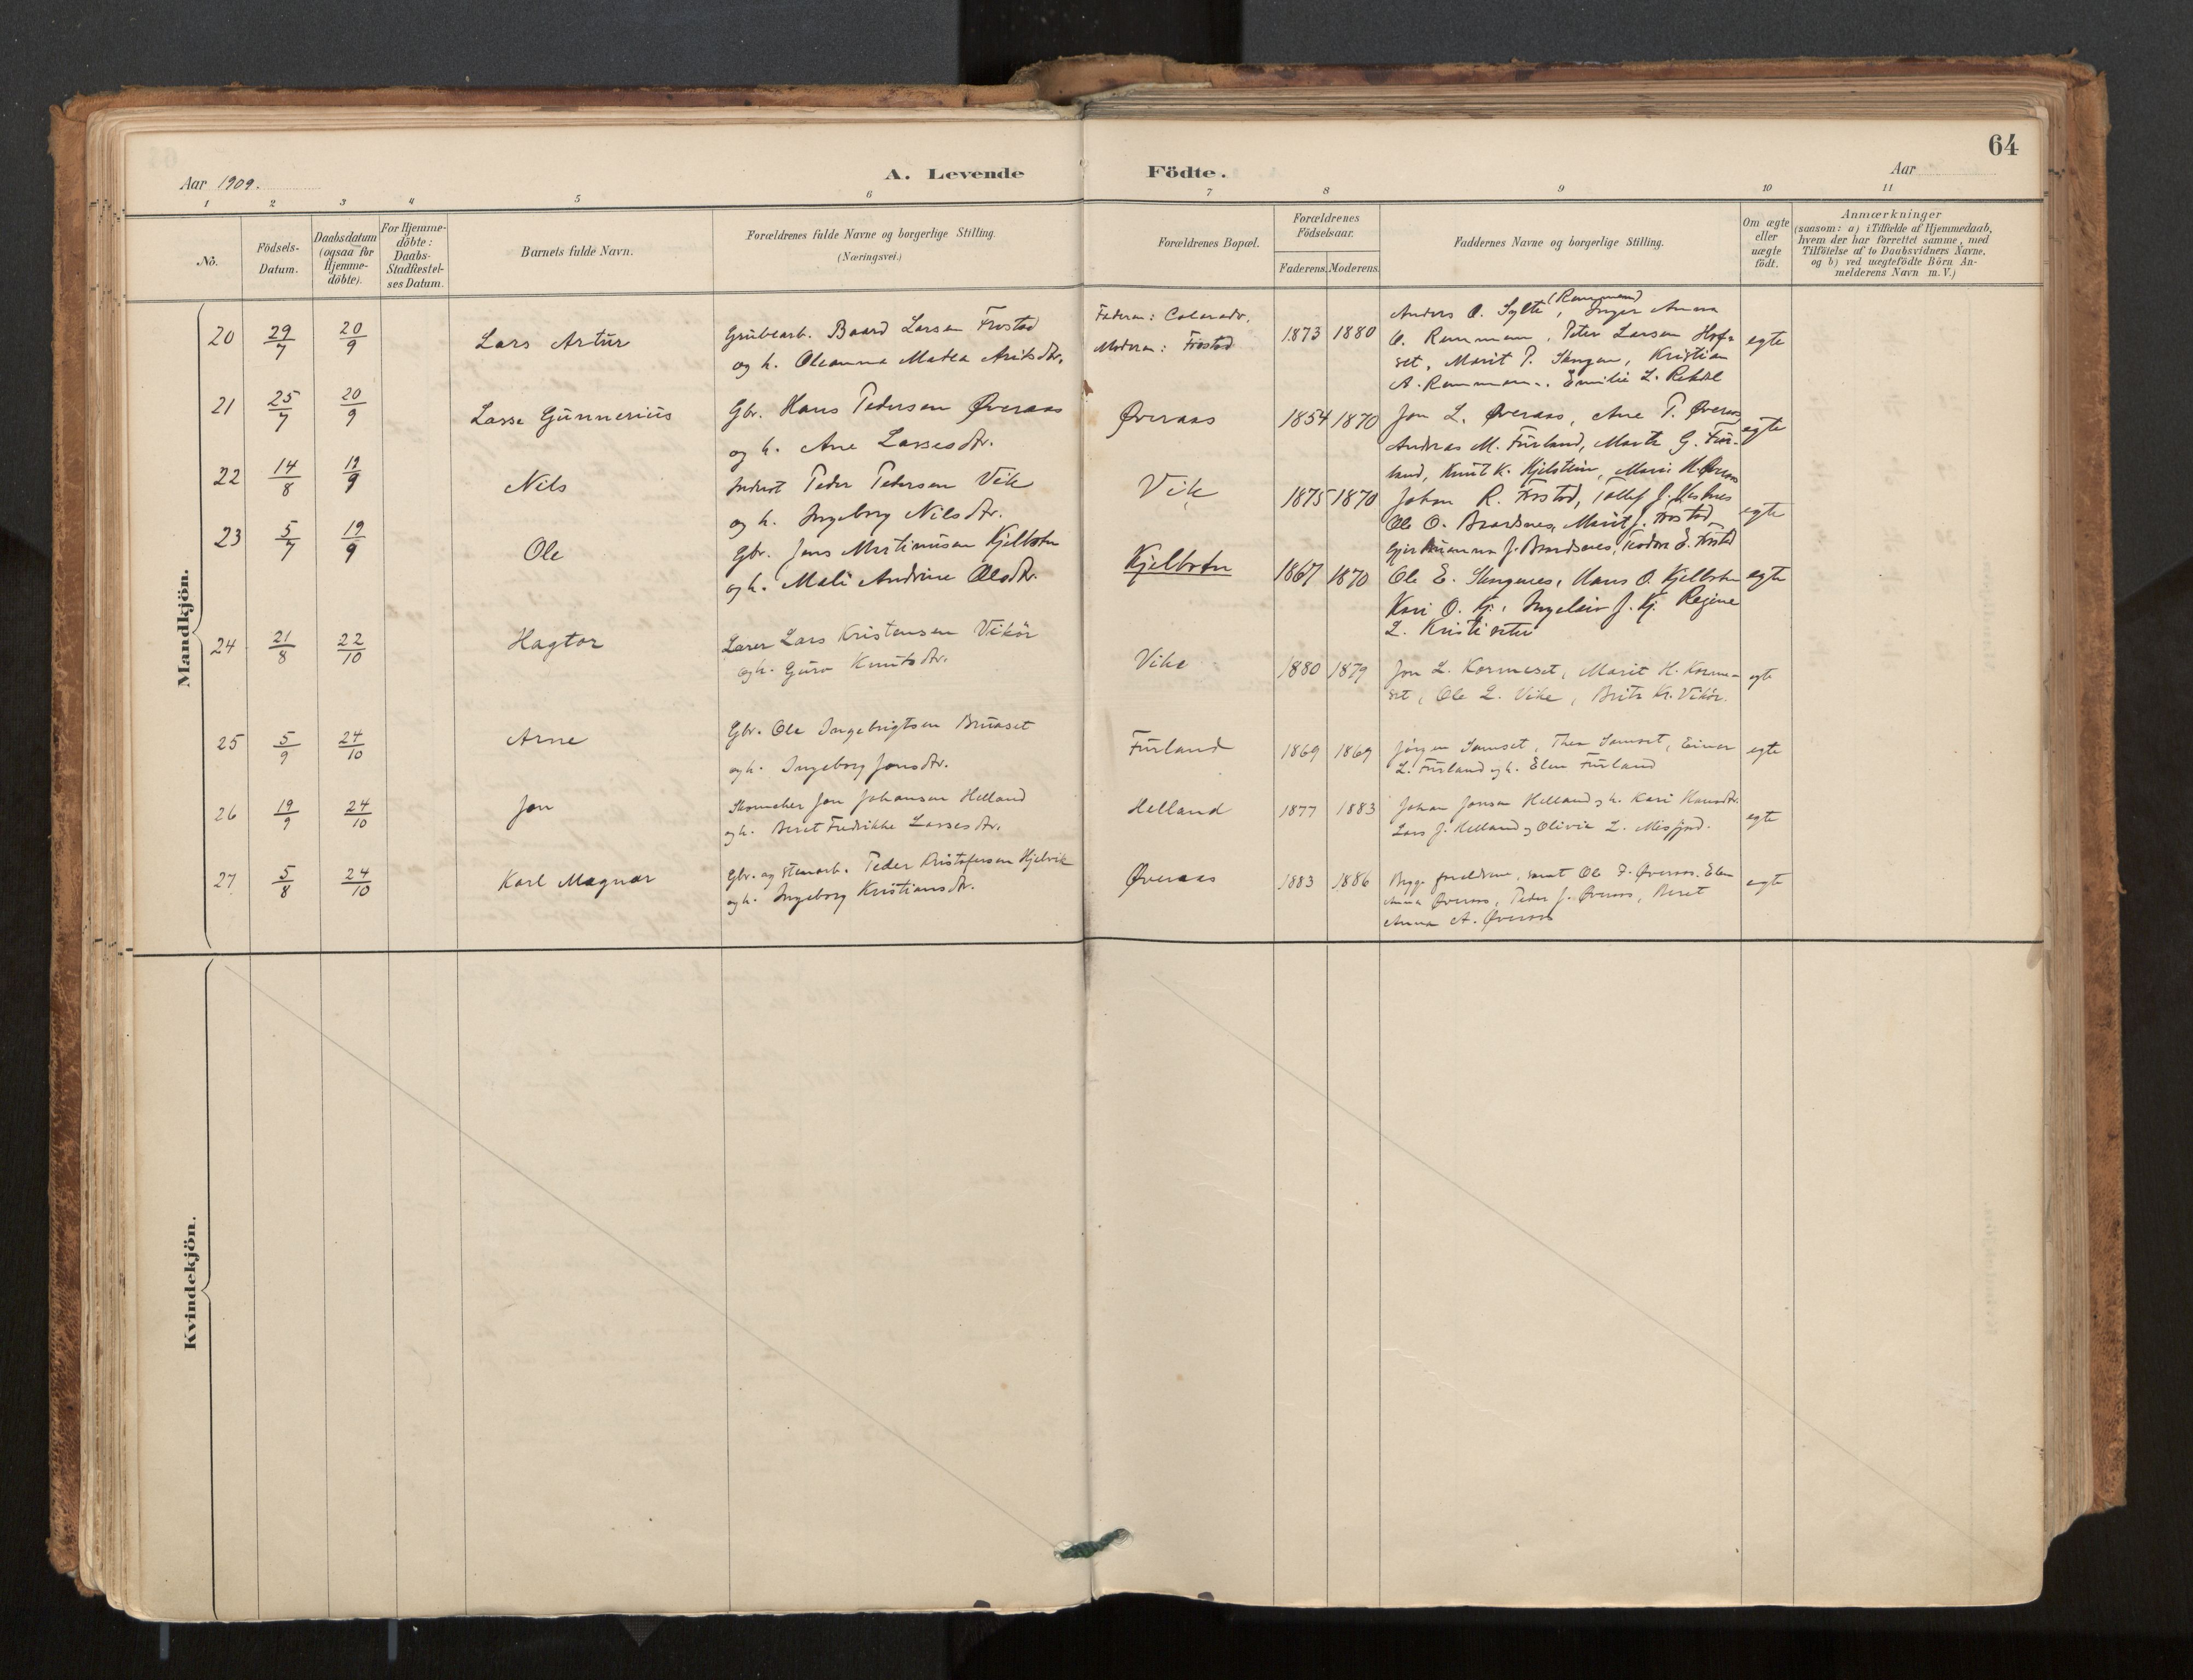 64
Aar 1909.
A. Levende Födte.
Aar
1 2 3 4 5 6 7 8 9 10 11
No.
Födsels-Datum.
Daabsdatum (ogsaa för Hjemme-döbte).
For Hjemme-döbte: Daabs-Stadfæstel-ses Datum.
Barnets fulde Navn.
Forældrenes fulde Navne og borgerlige Stilling.
(Næringsvei.)
Forældrenes Bopæl.
Forældrenes Födselsaar.
Faderens. Moderens.
Faddernes Navne og borgerlige Stilling.
Om ægte eller uægte födt.
Anmærkninger
(saasom: a) i Tilfælde af Hjemmedaab,
hvem der har forrettet samme, med
Tilföielse af to Daabsvidners Navne,
og b) ved uægtefödte Börn An-
melderens Navn m. V.)
Mandkjön.
20 29/7 20/9 Lars Artur
Grubearb. Baard Larsen Frostad
og h. Oleanna Matea Aritsdtr.
Faderen: Colorado.
Moderen: Frostad
1873 1880
Anders O. Sylte (Remmem), Inger Anna
O. Remmem, Peter Larsen Hof-
set, Marit P. Stengen, Kristian
A. Remmem, Emilie L. Rekdal
egte
21 25/7 20/9 Lasse Gunnerius
Gbr. Hans Pedersen Øveraas
og h. Ane Lassesdtr.
Øveraas 1854 1870
Jon L. Øveraas, Ane P. Øveraas
Andreas M. Furland, Marit G. Fur-
land, Knut K. Hjelstein, Marie H. Øveraas
egte
22 14/8 19/9 Nils
Inderst Peder Pedersen Vik
og h. Ingeborg Nilsdtr.
Vik 1875 1870
Johan R. Frostad, Tollef J.
Ole O. Brardsnes, Marit J. Frostad
J. Brardsnes, E. Frostad
egte
23 5/7 19/9 Ole
Gbr. Jens Martinusen Kjelbotn
og h. Mali Andrine Olsdtr.
Kjelbotn 1867 1870
Ole E. Stengenes, Hans O. Kjelbotn
Kari O. Kj., Ingeleiv J. Kj. Regine
L.
egte
24 21/8 22/10 Hagtor
Lærer Lars Kristensen Vikör
og h. Guro Knutsdtr.
Vike 1880 1879
Jon L. Kormeset, Marit H. Korme-
set, Ole L. Vike, Brita Kr. Vikör.
egte
25 5/9 24/10 Arne
Gbr. Ole Ingebrigtsen Bruaset
og h. Ingeborg Jonsdtr.
Furland 1869 1869
Jörgen Samset, Thea Samset, Einar
L. Furland og h. Elen Furland
egte
26 19/9 24/10 Jon
Skomaker Jon Johansen Helland
og h. Beret Fredrikke Lassesdtr.
Helland 1877 1883
Johan Jonsen Helland og h. Kari Hansdtr.
Lars J. Helland og Olivia L. Misfjord.
egte
27 5/8 24/10 Karl Magnar
Gbr. og stenarb. Peder Kristofersen Hjelvik
og h. Ingeborg Kristiansdtr.
Øveraas 1883 1886
Begge forældrene, samt Ole J. Øveraas. Elen
Anna Øveraas, Peder J. Øveraas, Beret
Anna A. Øveraas
egte
Kvindekjön.